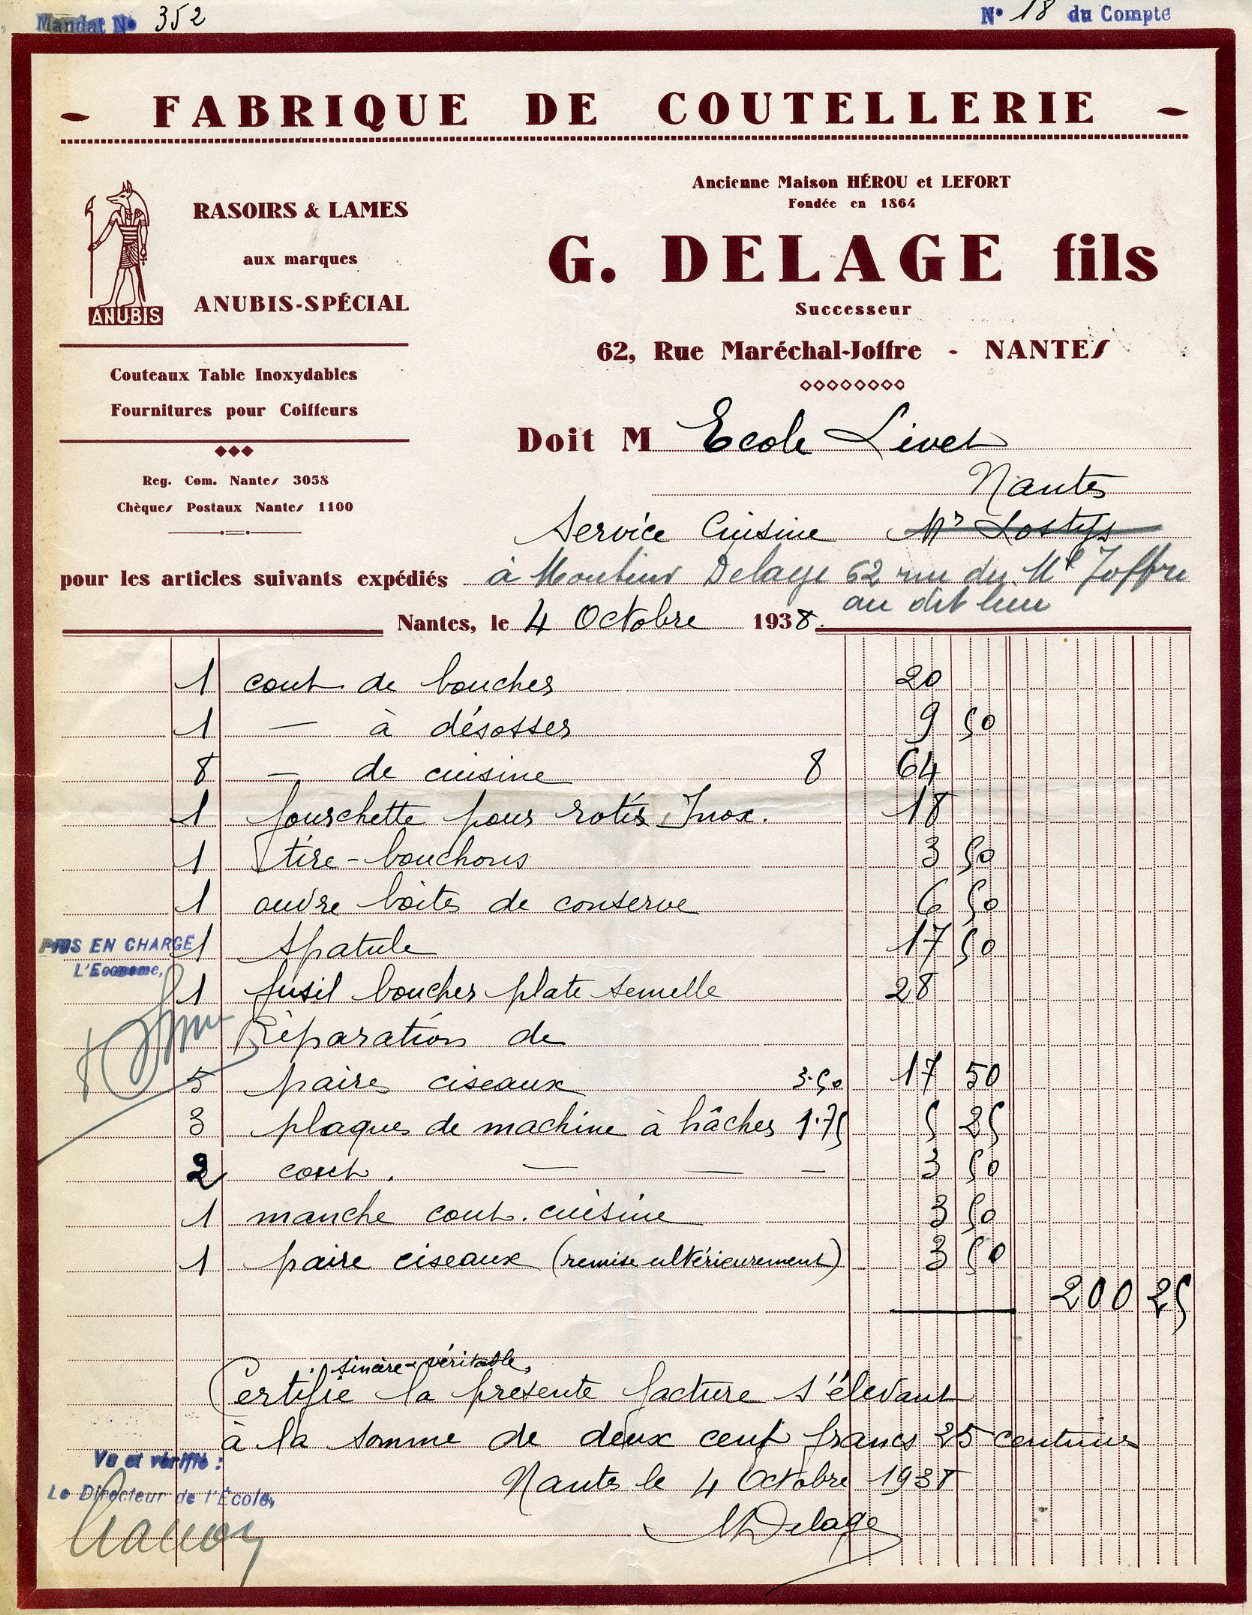 Mandat N° 352
N° 18 du Compte
- FABRIQUE DE COUTELLERIE -
ANUBIS
RASOIRS & LAMES
aux marques
ANUBIS-SPÉCIAL
Couteaux Table Inoxydables
Fournitures pour Coiffeurs
Reg. Com. Nantes 3058
Chèques Postaux Nantes 1100
Ancienne Maison HÉROU et LEFORT
Fondée en 1864
G. DELAGE fils
Successeur
62, Rue Maréchal-Joffre - NANTES
Doit M Ecole Livet
Nantes
Service Cuisine Mr
pour les articles suivants expédiés à Monsieur Delage 62 rue du Ml Joffre
au dit lieu
Nantes, le 4 Octobre 1938.
1 cout de boucher 20
1 — à désosser 9 50
8 — de cuisine 8 64
1 fourchette pour rotis Inox. 18
1 tire-bouchons 3 50
1 ouvre boites de conserve 6 50
1 spatule 17 50
1 fusil boucher plate semelle 28
Réparation de
5 paires ciseaux 3.50 17 50
3 plaques de machine à hâcher 1.75 5 25
2 cout. — — — 3 50
1 manche cout. cuisine 3 50
1 paire ciseaux (remise ultérieurement) 3 50
200 25
PRIS EN CHARGE
L'Econome,
sincère & véritable,
Certifie la présente facture s'élevant
à la somme de deux cent francs 25 centimes
Nantes le 4 Octobre 1938
Delage
Vu et vérifié :
Le Directeur de l'École,